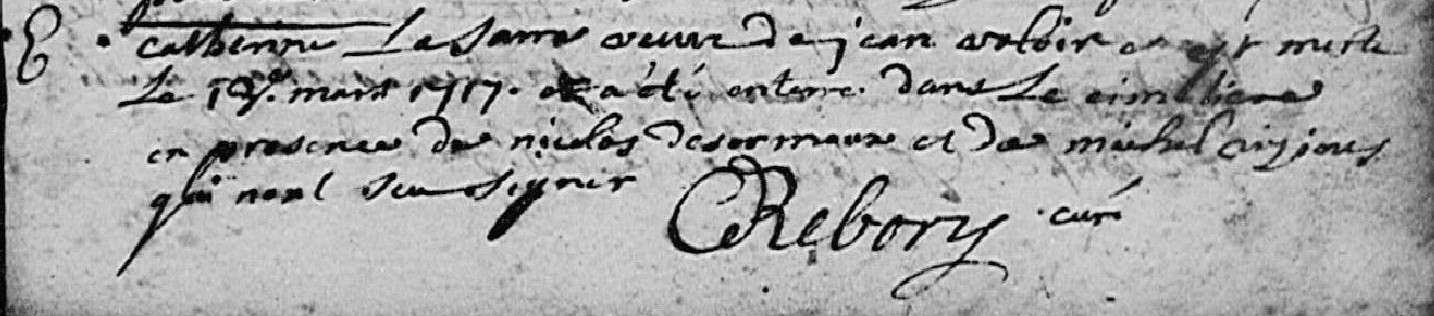 E. catherine Le Jame veuve de jean voloir est morte
Le 19e. mars 1717. et a été enterre dans Le cimetiere
en presence de nicolas desormeaux et de michel
qui nont sceu signer
CRebory curé